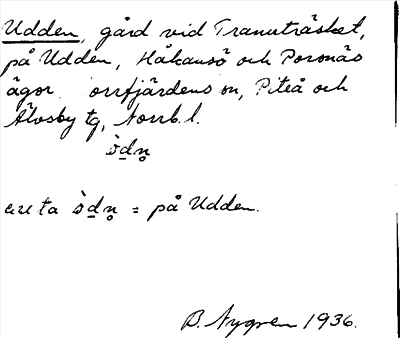 Udden, gård vid Tranuträsket,
på Udden, Håkansö och Porsnäs
ägor. Norrfjärdens sn, Piteå och
Älvsby tg, Norrb. l.
på Udden.
B. Nygren 1936.